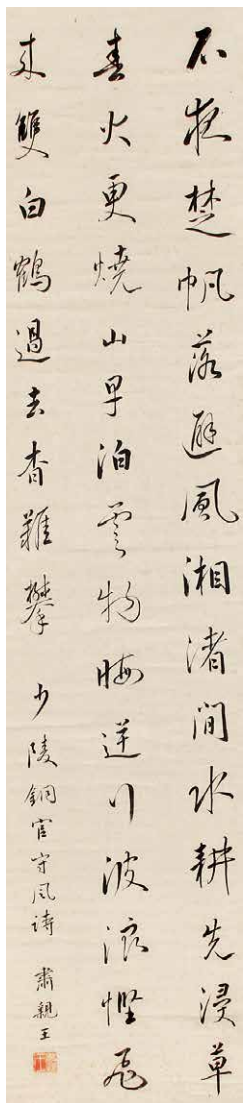 不夜楚帆落避風湘渚間水耕先浸草
春火更燒山早泊雲物晦逆行波浪慳飛
來雙白鶴過去杳難攀
少陵銅官守風詩 肅親王